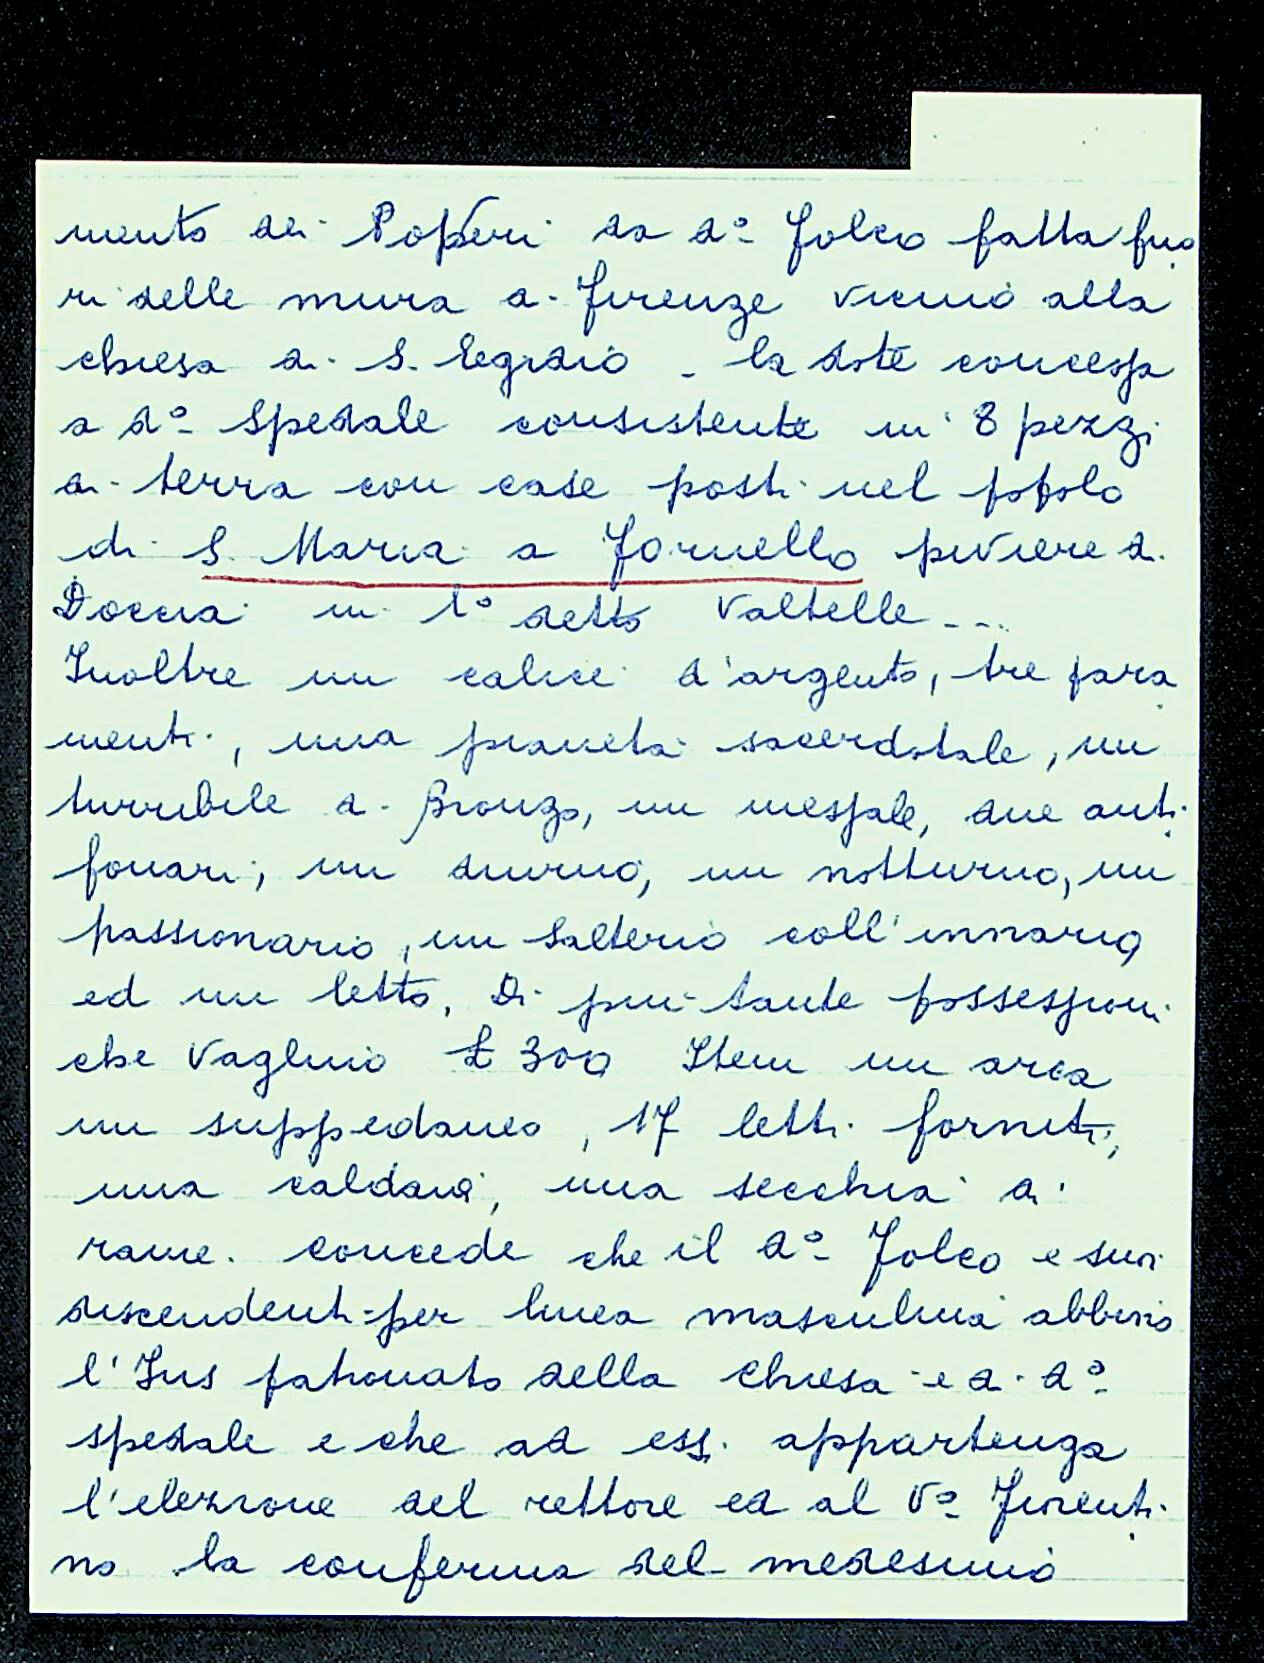 mento dei Poveri da d.º Folco fatta fuo
ri delle mura di Firenze vicino alla
chiesa di S. Egidio - la dote concessa
a d.º Spedale consistente in 8 pezzi
di terra con case posti nel popolo
di S. Maria a Fornello piviere di
Doccia in l.º detto Valtelle...
Inoltre un calice d'argento, tre para
menti, una pianeta sacerdotale, un
turribile di Bronzo, un messale, due anti
fonari, un diurno, un notturno, un
passionario, un Salterio coll'innario
ed un letto, Di più tante possessioni
che vaglino £ 300 Item un arca
un suppedaneo, 17 letti forniti,
una caldaia, una secchia di
rame. concede che il d.º Folco e suoi
discendenti per linea masculina abbino
l'Jus patronato della Chiesa e di d.º
spedale e che ad essi appartenga
l'elezione del rettore ed al V.º Fiorenti
no la conferma del medesimo